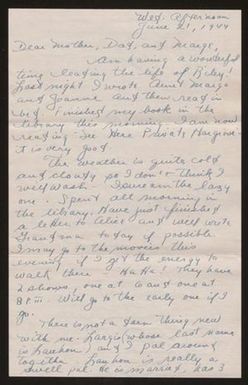 Wed. Afternoon
June 21, 1944
Dear Mother, Dad, and Marge,
Am having a wonderful
time leading the life of Riley!
Last night I wrote Aunt Marge
and Joanne and then read in
bed. Finished my book in the
library this morning. I am now
reading "See Here Private Hargrove"
it is very good
The weather is quite cold
and cloudy so I don't think I
will wash - I sure am the lazy
one. Spent all morning in
the library. Have just finished
a letter to and will write
Grandma today if possible.
I may go to the movies this
evening if I get the energy to
walk there Ha Ha! They have
2 shows, one at 6 and one at
8 PM. Will go to the early one if I
go.
There is not a darn thing new
with me. whose last name
is and I pal around
together. is really a
swell pal. He is married, has 3